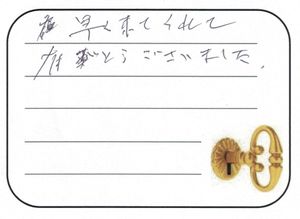 早く来てくれて
有難とうございました。